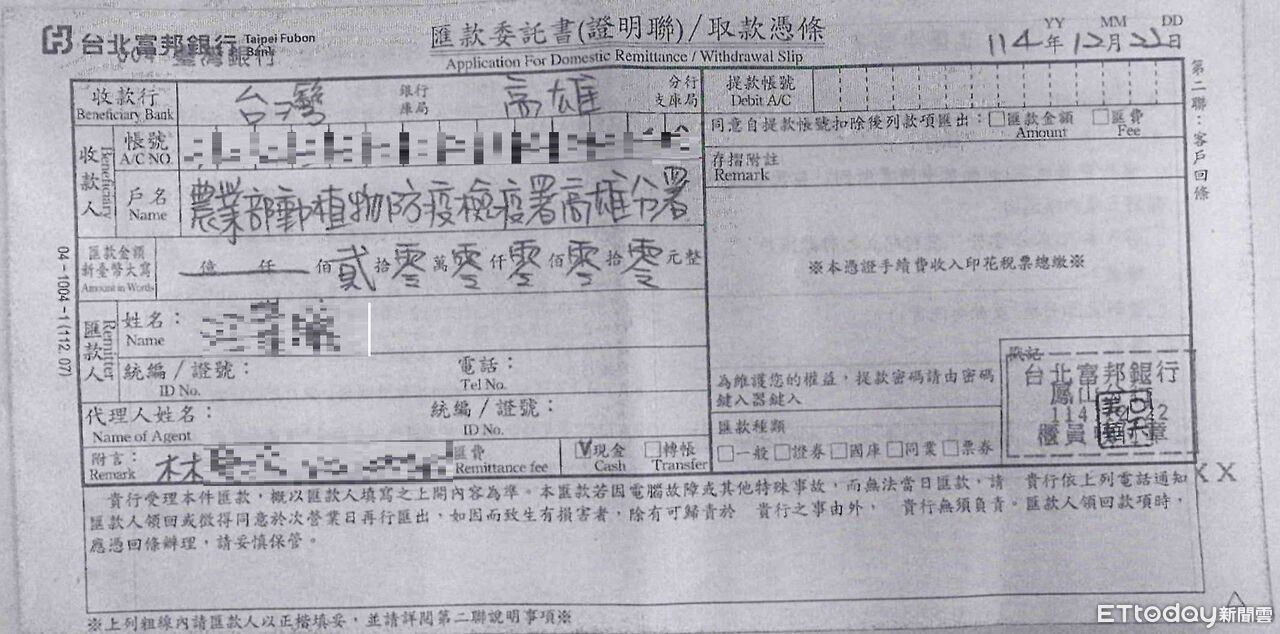 台北富邦銀行 Taipei Fubon Bank
004 臺灣銀行
匯款委託書(證明聯)/取款憑條
Application For Domestic Remittance / Withdrawal Slip
YY MM DD
114年12月22日
第二聯：客戶回條
04-1004-1(112.07)
收款行 台灣 銀行 庫局 高雄 分行 支庫局
Beneficiary Bank
收款人 Beneficiary
帳號
A/C NO.
戶名 農業部動植物防疫檢疫署高雄分署
Name
匯款金額 新臺幣大寫 億 仟 佰 貳 拾 零 萬 零 仟 零 佰 零 拾 零 元整
Amount in Words
匯款人 Remitter
姓名：
Name
統編/證號： 電話：
ID No. Tel No.
代理人姓名： 統編/證號：
Name of Agent ID No.
附言： 林 匯費 V現金 轉帳
Remark Remittance fee Cash Transfer
提款帳號
Debit A/C
同意自提款帳號扣除後列款項匯出：□匯款金額 □匯費
Amount Fee
存摺附註
Remark
※本憑證手續費收入印花稅票總繳※
為維護您的權益，提款密碼請由密碼
鍵入器鍵入
匯款種類
□一般 □證券 □國庫 □同業 □票券
戳記
台北富邦銀行
鳳山分行
櫃員 章
XX
貴行受理本件匯款，概以匯款人填寫之上開內容為準。本匯款若因電腦故障或其他特殊事故，而無法當日匯款，請 貴行依上列電話通知
匯款人領回或徵得同意於次營業日再行匯出，如因而致生有損害者，除有可歸責於 貴行之事由外， 貴行無須負責。匯款人領回款項時，
應憑回條辦理，請妥慎保管。
※上列粗線內請匯款人以正楷填妥，並請詳閱第二聯說明事項※
ETtoday新聞雲